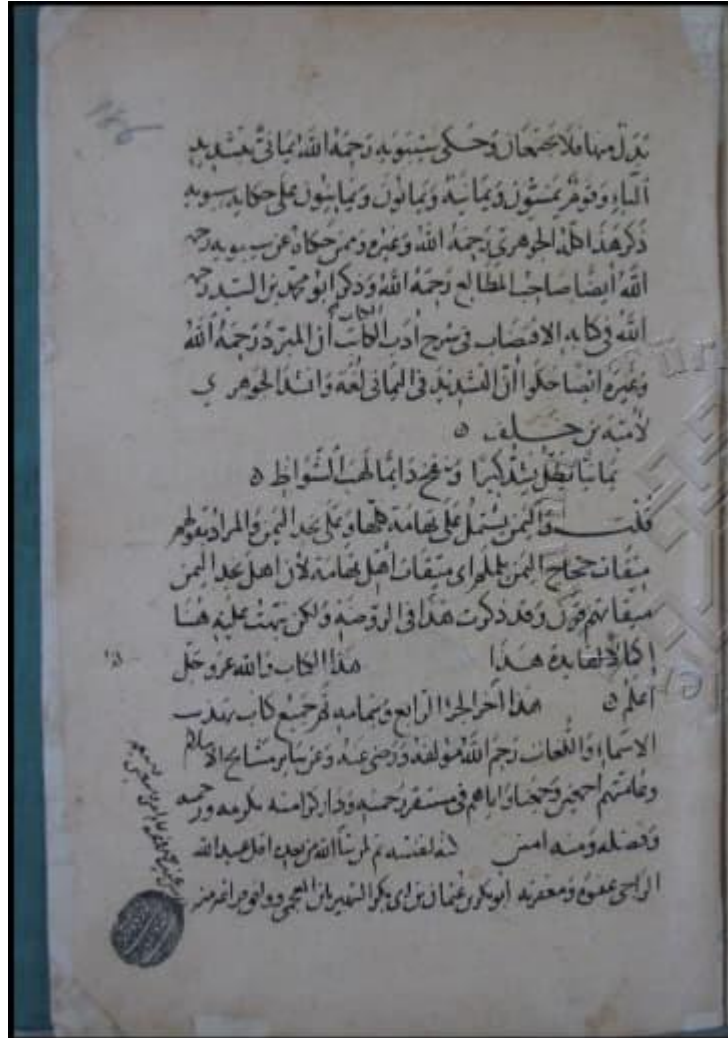 تدل منها فلا يجتمعان وحكى سيبويه رحمه الله يمانيّ بتشديد
الياء وقوم يمنيون ويمانية ويمانون ويمانيون على حكاية سيبويه
ذكر هذا كله الجوهري رحمه الله وغيره وممن حكاه عن سيبويه رحمه
الله أيضا صاحب المطالع رحمه الله وذكر ابو محمد بن السيد رحمه
الله في كتابه الاقتضاب في شرح أدب الكاتب أن المبرد رحمه الله
وغيره ايضا حكوا أن التشديد في اليماني لغة وانشد الجوهري
لأمية بن خلف ه
يمانيا يظل يشد كيرا وينفخ دائما لهب الشواظ ه
قلت واليمن يشتمل على تهامة كلها وعلى نجد اليمن والمراد بقولهم
ميقات حجاج اليمن يلملم اي ميقات اهل تهامة لأن اهل نجد اليمن
ميقاتهم قرن وقد ذكرت هذا في الروضة ولكن نبهت عليه هنا
إكمالا لفايدة هذا هذا الكتاب والله عز وجل
أعلم ه هذا آخر الجزء الرابع وبتمامه تم جميع كتاب تهذيب
الاسماء واللغات رحم الله مؤلفه ورضي عنه وعن ساير مشايخ الاسلام
وعامتهم اجمعين وجمعنا واياهم في مستقر رحمته ودار كرامته بكرمه ورحمته
وفضله ومنه امين كتبه لنفسه ثم لمن شاء الله من بعده اقل عبيد الله
الراجي عفوه ومغفرته ابو بكر بن عثمان بن ابي بكر الشهير بابن العجمي